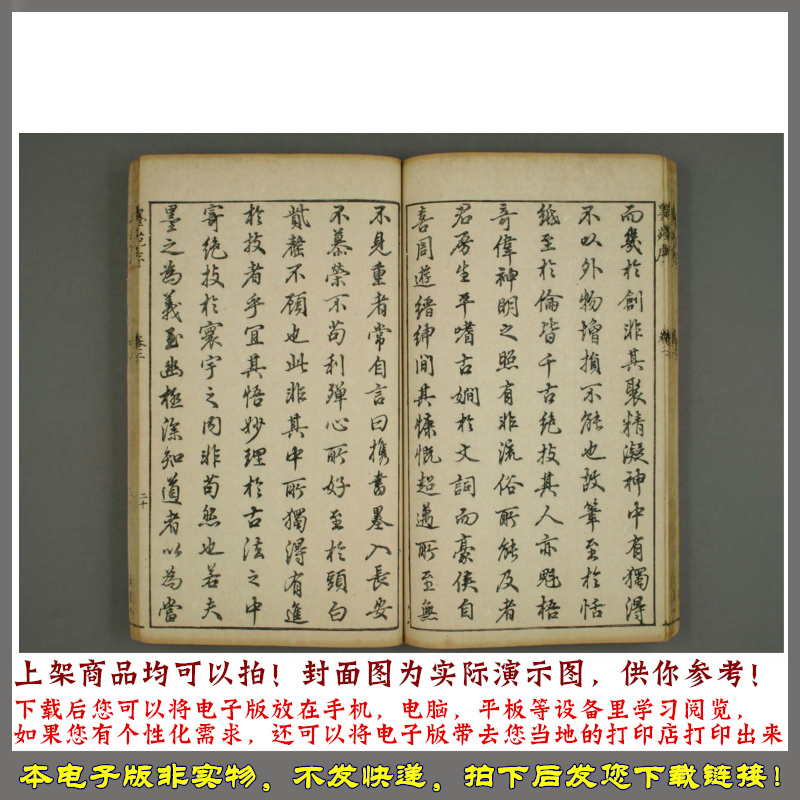 而幾於創非其聚精凝神中有獨得
不以外物增損不能也故筆至於恬
紙至於倫皆千古絕技其人亦魁梧
奇偉神明之照有非流俗所能及者
君房生平嗜古嫺於文詞而豪俠自
喜周遊縉紳間其慷慨超邁所至無
不見重者常自言曰攜書墨入長安
不慕榮不苟利殫心所好至於頭白
貲罄不顧也此非其中所獨得有進
於技者乎宜其悟妙理於古法之中
寄絕技於寰宇之內非苟然也若夫
墨之為義至幽極深知道者以為當
卷三
二十
上架商品均可以拍！封面图为实际演示图，供你参考！
下载后您可以将电子版放在手机，电脑，平板等设备里学习阅览，
如果您有个性化需求，还可以将电子版带去您当地的打印店打印出来
本电子版非实物，不发快递，拍下后发您下载链接！